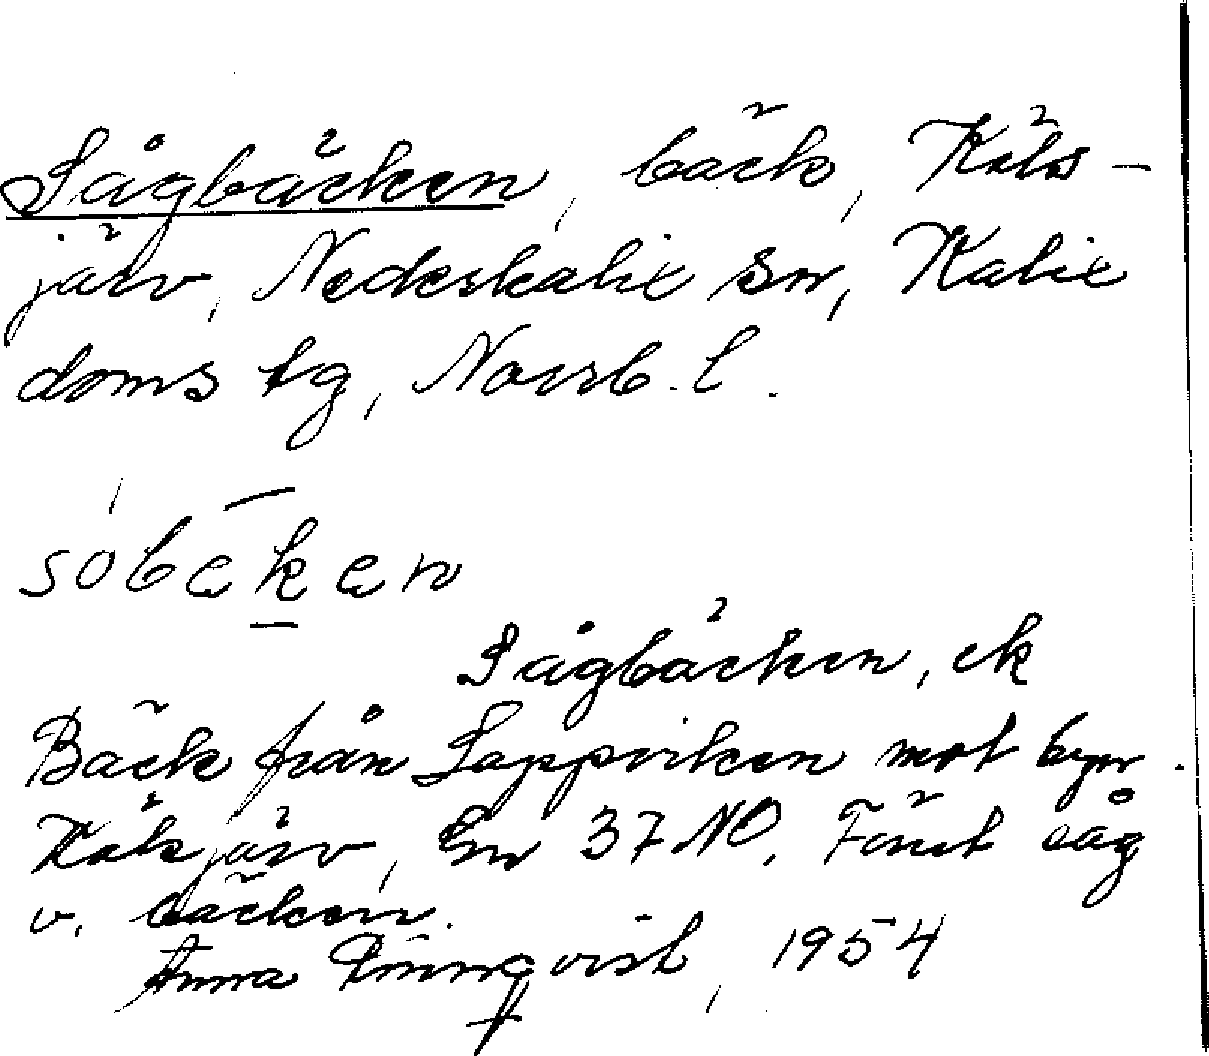 Sågbäcken, bäck, Käls-
järv, Nederkalix sn, Kalix
doms tg, Norrb. l.
Sågbäcken, ek
Bäck från Lappviken mot byn.
Kälsjärv, Gm 37 NO. Förut såg
v. bäcken.
Anna Rönnqvist, 1954